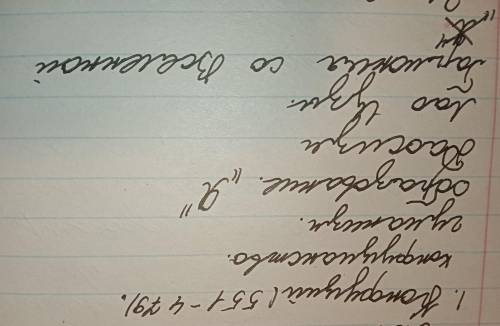 1. Конфуций (551 - 479).
конфуцианство.
гуманизм.
образование. „Я"
Даосизм
Лао Цзы.
Гармония со Вселенной